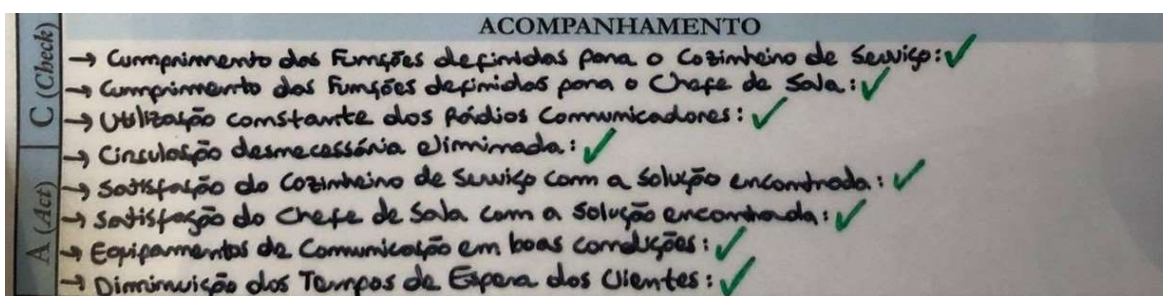 ACOMPANHAMENTO
C (Check)
→ Cumprimento das Funções definidas para o Cozinheiro de Serviço: ✓
→ Cumprimento das Funções definidas para o Chefe de Sala: ✓
→ Utilização constante dos Rádios Comunicadores: ✓
→ Circulação desnecessária eliminada: ✓
A (Act)
→ Satisfação do Cozinheiro de Serviço com a solução encontrada: ✓
→ Satisfação do Chefe de Sala com a solução encontrada: ✓
→ Equipamentos de Comunicação em boas condições: ✓
→ Diminuição dos Tempos de Espera dos Clientes: ✓